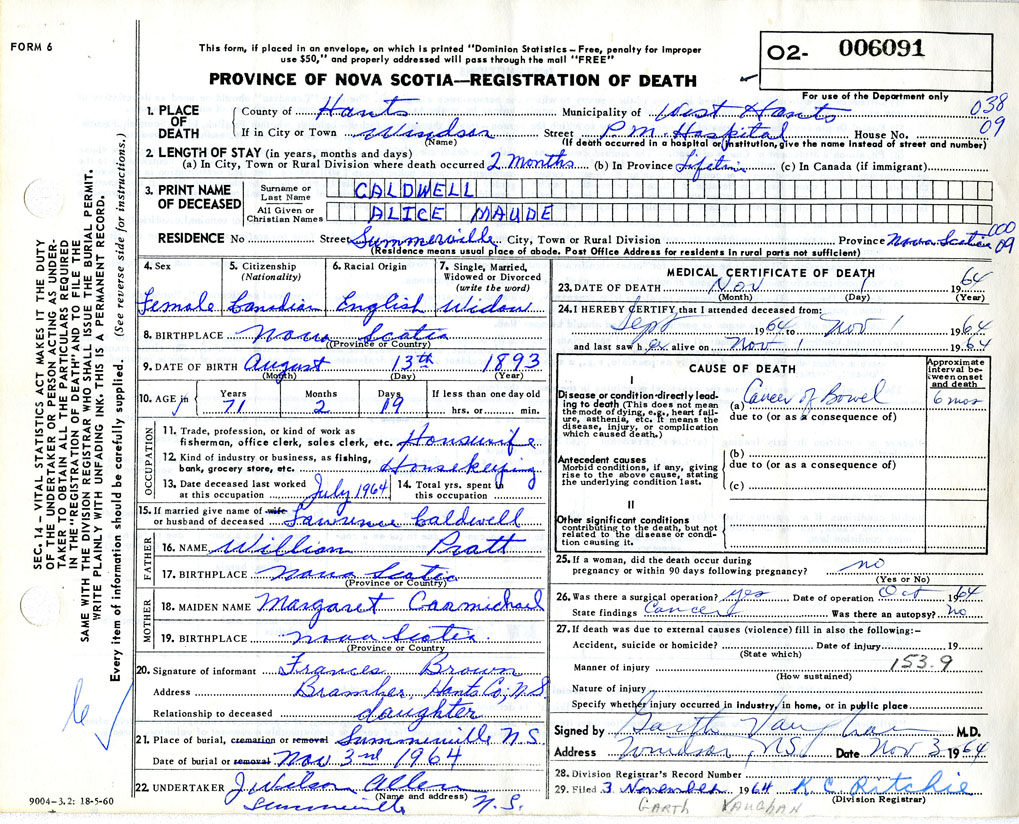 FORM 6
This form, if placed in an envelope, on which is printed "Dominion Statistics – Free, penalty for improper
use $50," and properly addressed will pass through the mail "FREE"
PROVINCE OF NOVA SCOTIA—REGISTRATION OF DEATH
O2- 006091
For use of the Department only
038
09
1. PLACE OF DEATH
County of Hants Municipality of West Hants
If in City or Town Windsor Street P.M. Hospital House No.
(Name) (If death occurred in a hospital or institution, give the name instead of street and number)
2. LENGTH OF STAY (in years, months and days)
(a) In City, Town or Rural Division where death occurred 2 Months (b) In Province Lifetime (c) In Canada (if immigrant)
3. PRINT NAME OF DECEASED
Surname or Last Name CALDWELL
All Given or Christian Names ALICE MAUDE
000
09
RESIDENCE No Street Summerville City, Town or Rural Division Province Nova Scotia
(Residence means usual place of abode. Post Office Address for residents in rural parts not sufficient)
4. Sex Female
5. Citizenship (Nationality) Canadian
6. Racial Origin English
7. Single, Married, Widowed or Divorced (write the word) Widow
8. BIRTHPLACE Nova Scotia
(Province or Country)
9. DATE OF BIRTH August 13th 1893
(Month) (Day) (Year)
10. AGE Years 71 Months 2 Days 19 If less than one day old hrs. or min.
OCCUPATION
11. Trade, profession, or kind of work as fisherman, office clerk, sales clerk, etc. Housewife
12. Kind of industry or business, as fishing, bank, grocery store, etc. Housekeeping
13. Date deceased last worked at this occupation July 1964
14. Total yrs. spent in this occupation
15. If married give name of wife or husband of deceased Lawrence Caldwell
FATHER
16. NAME William Pratt
17. BIRTHPLACE Nova Scotia
(Province or Country)
MOTHER
18. MAIDEN NAME Margaret Carmichael
19. BIRTHPLACE Nova Scotia
(Province or Country)
20. Signature of informant Frances Brown
Address Bramber, Hants Co; N.S.
Relationship to deceased daughter
21. Place of burial, cremation or removal Summerville N.S.
Date of burial or removal Nov 3rd 1964
22. UNDERTAKER J Wilson Allen
(Name and address)
Summerville N.S.
9004-3.2: 18-5-60
MEDICAL CERTIFICATE OF DEATH
23. DATE OF DEATH Nov 1 1964
(Month) (Day) (Year)
24. I HEREBY CERTIFY that I attended deceased from:
Sept 1964 to Nov 1 1964
and last saw her alive on Nov 1 1964
CAUSE OF DEATH
Approximate interval between onset and death
I
Disease or condition directly leading to death (This does not mean the mode of dying, e.g., heart failure, asthenia, etc. It means the disease, injury, or complication which caused death.)
(a) Cancer of Bowel 6 mos
due to (or as a consequence of)
Antecedent causes
Morbid conditions, if any, giving rise to the above cause, stating the underlying condition last.
(b)
due to (or as a consequence of)
(c)
II
Other significant conditions
contributing to the death, but not related to the disease or condition causing it.
25. If a woman, did the death occur during pregnancy or within 90 days following pregnancy? no
(Yes or No)
26. Was there a surgical operation? yes Date of operation Oct 1964
State findings Cancer Was there an autopsy? No
27. If death was due to external causes (violence) fill in also the following:–
Accident, suicide or homicide? Date of injury 19
(State which)
Manner of injury 153.9
(How sustained)
Nature of injury
Specify whether injury occurred in industry, in home, or in public place
Signed by Garth Vaughan M.D.
Address Windsor, N.S. Date Nov 3 1964
28. Division Registrar's Record Number
29. Filed 3 November 1964 K C Ritchie
(Division Registrar)
GARTH VAUGHAN
SEC. 14 – VITAL STATISTICS ACT MAKES IT THE DUTY
OF THE UNDERTAKER OR PERSON ACTING AS UNDER-
TAKER TO OBTAIN ALL THE PARTICULARS REQUIRED
IN THE "REGISTRATION OF DEATH" AND TO FILE THE
SAME WITH THE DIVISION REGISTRAR WHO SHALL ISSUE THE BURIAL PERMIT.
WRITE PLAINLY WITH UNFADING INK. THIS IS A PERMANENT RECORD.
Every item of information should be carefully supplied. (See reverse side for instructions.)